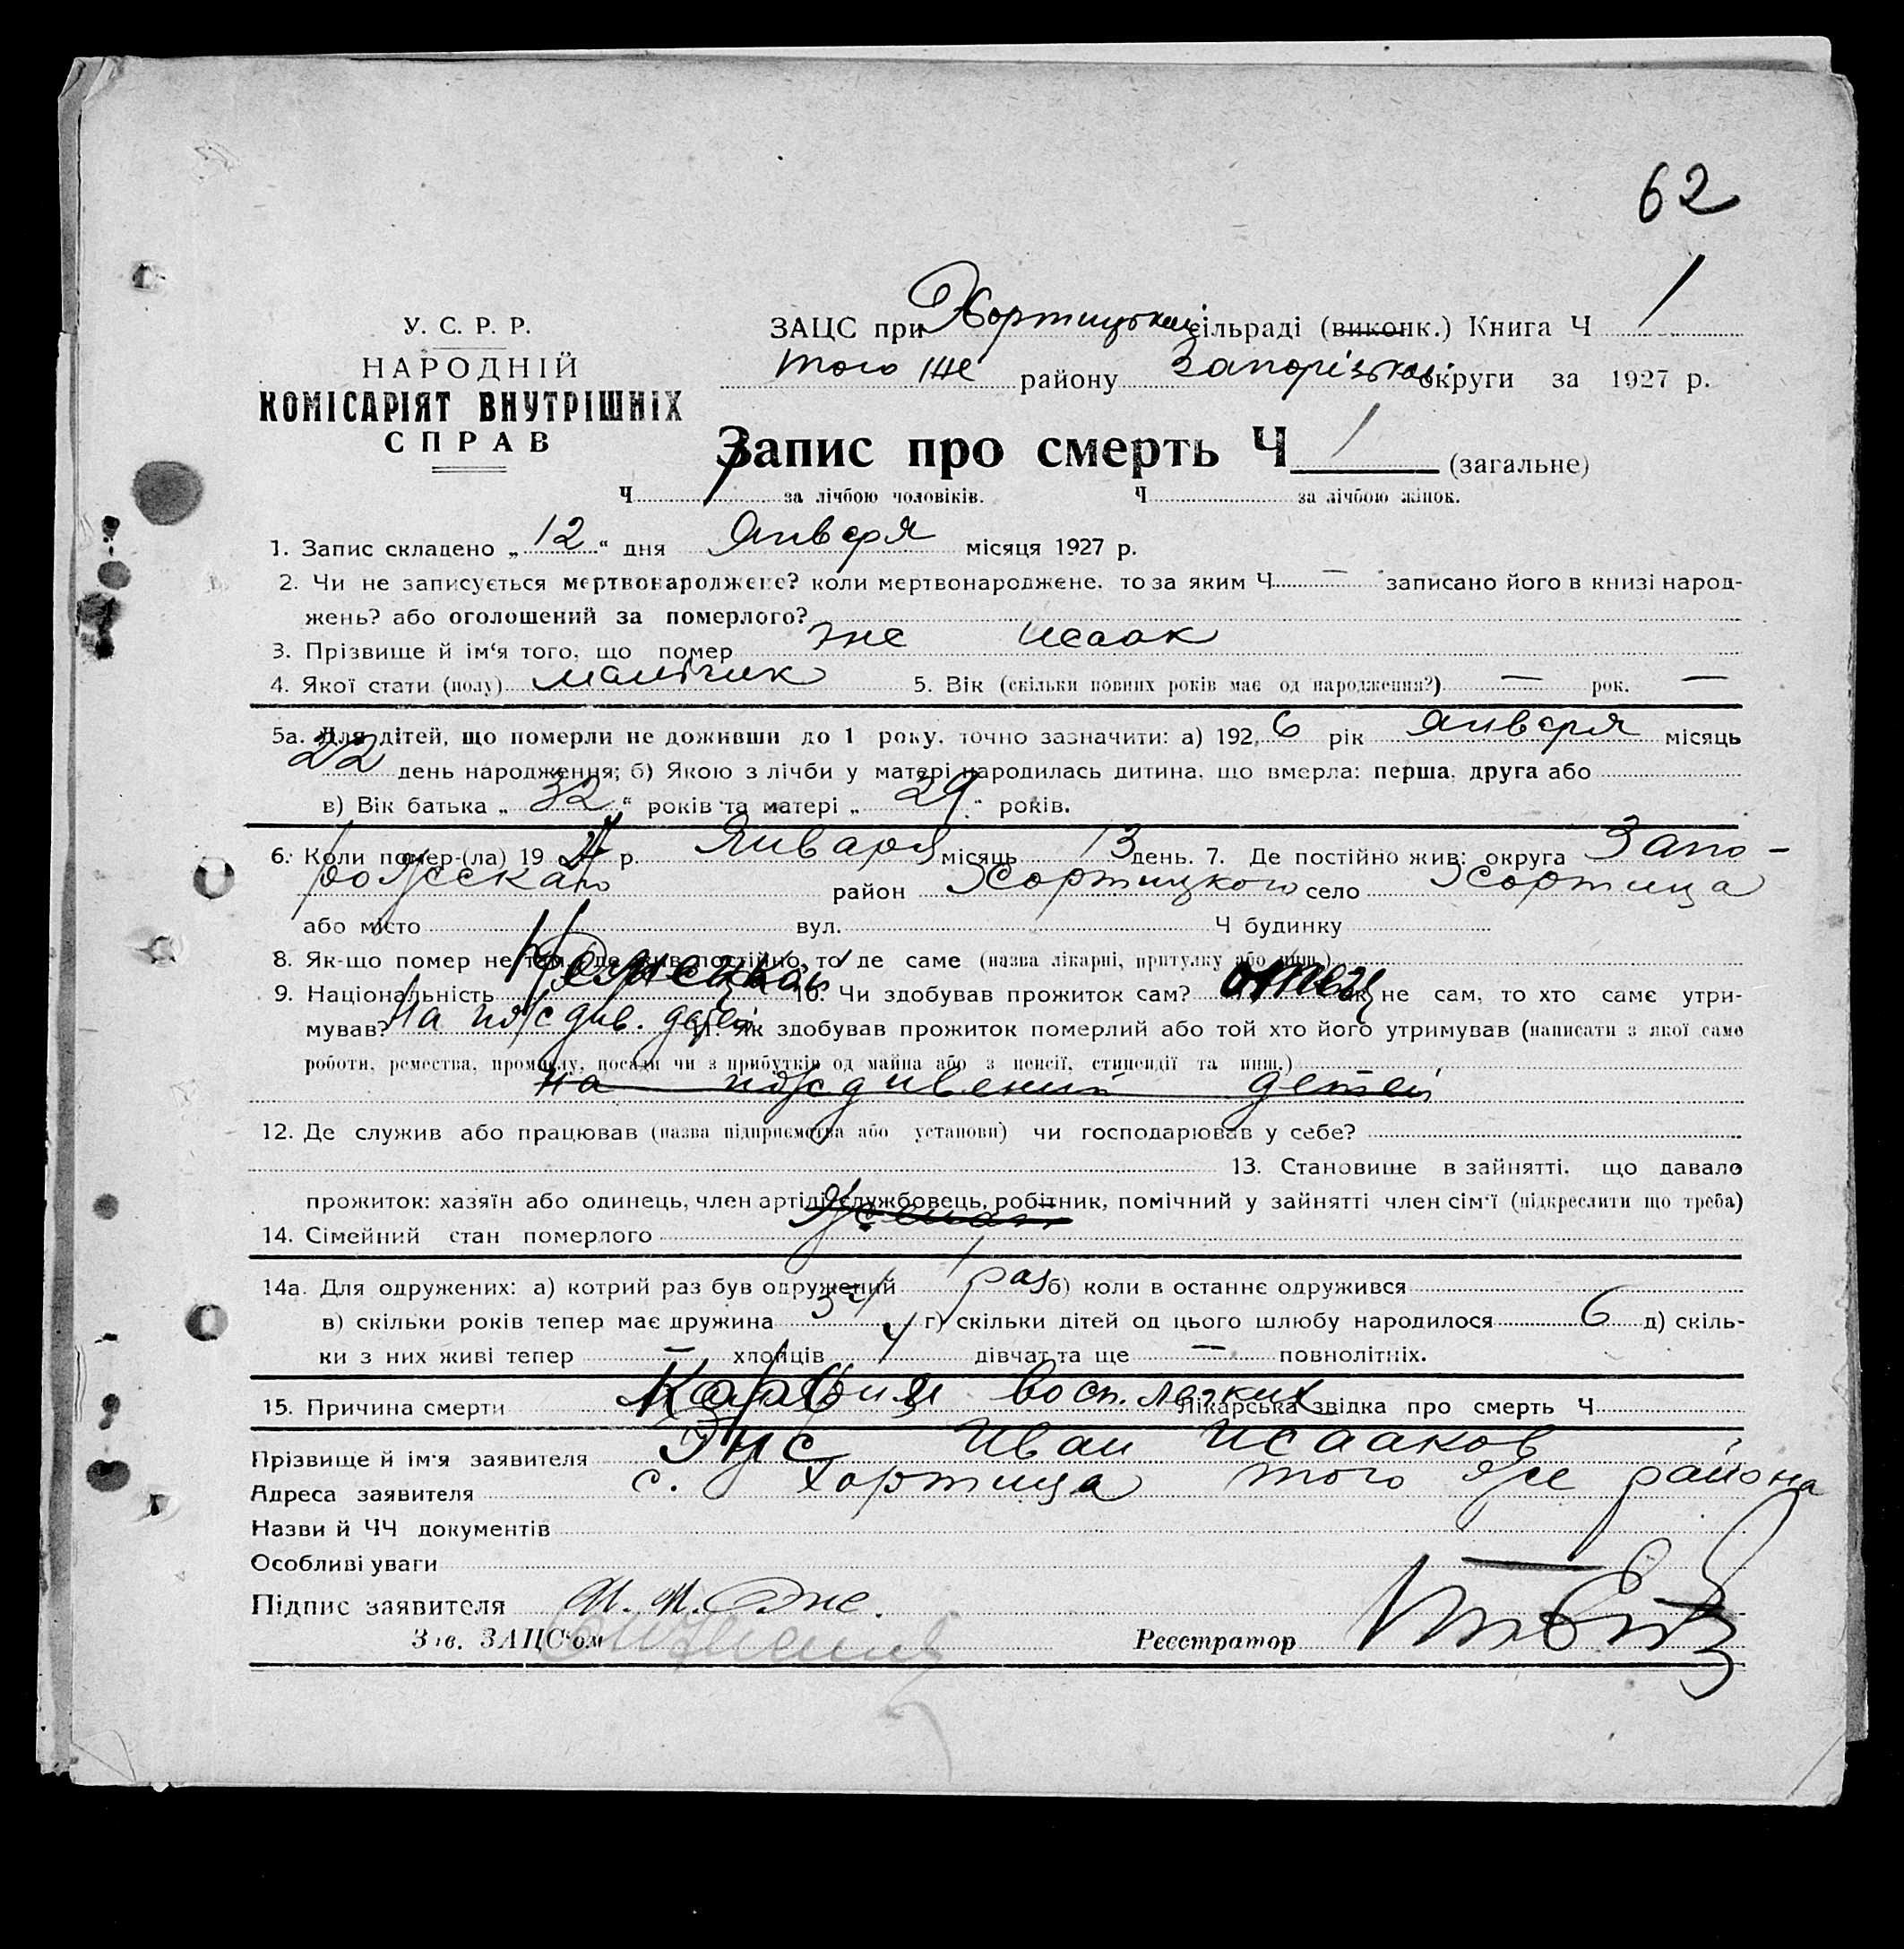 62
У. С. Р. Р.
НАРОДНІЙ
КОМІСАРІЯТ ВНУТРІШНІХ
СПРАВ
ЗАЦС при Хортицькій сільраді (виконк.) Книга Ч 1
того же району Запорізької округи за 1927 р.
Запис про смерть Ч 1 (загальне)
Ч 1 за лічбою чоловіків. Ч за лічбою жінок.
1. Запис складено „ 12 “ дня Января місяця 1927 р.
2. Чи не записується мертвонароджене? коли мертвонароджене, то за яким Ч — записано його в книзі народ-
жень? або оголошений за померлого?
3. Прізвище й ім‘я того, що помер Энс Исаак
4. Якої стати (полу) мальчик 5. Вік (скільки повних років має од народження?) — рок. —
5а. Для дітей, що померли не доживши до 1 року, точно зазначити: а) 192 6 рік Января місяць
22 день народження; б) Якою з лічби у матері народилась дитина, що вмерла: перша, друга або
в) Вік батька „ 32 “ років та матері „ 29 “ років.
6. Коли помер-(ла) 19 27 р. Января місяць 13 день. 7. Де постійно жив: округа Запо-
рожская район Хортицкого село Хортица
або місто вул. Ч будинку
8. Як-що помер не там, де жив постійно, то де саме (назва лікарні, притулку або инш.)
9. Національність Немецкая 10. Чи здобував прожиток сам? отец як не сам, то хто саме утри-
мував? На иждив. детей 11. Як здобував прожиток померлий або той хто його утримував (написати з якої саме
роботи, ремества, промислу, посади чи з прибутків од майна або з пенсії, стипендії та инш.)
На иждивении детей
12. Де служив або працював (назва підприємства або установи) чи господарював у себе?
13. Становище в зайнятті, що давало
прожиток: хазяїн або одинець, член артілі, службовець, робітник, помічний у зайнятті член сім‘ї (підкреслити що треба)
14. Сімейний стан померлого Женат
14а. Для одружених: а) котрий раз був одружений 1 раз б) коли в останнє одружився
в) скільки років тепер має дружина г) скільки дітей од цього шлюбу народилося 6 д) скіль-
ки з них живі тепер — хлопців 4 дівчат та ще — повнолітніх.
15. Причина смерти восп. легких Лікарська звідка про смерть Ч
Прізвище й ім‘я заявителя Энс Иван Исааков
Адреса заявителя с. Хортица того же района
Назви й ЧЧ документів
Особливі уваги —
Підпис заявителя И. И. Энс.
Зав. ЗАЦС‘ом
Реєстратор